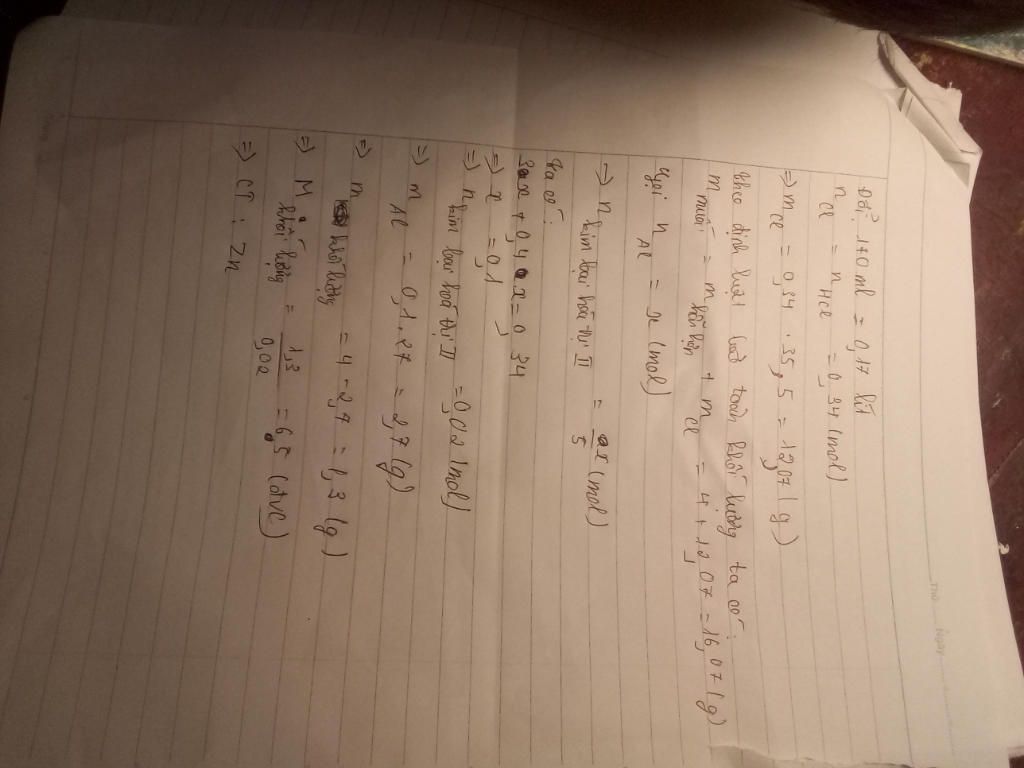 Đổi 170 ml = 0,17 lít
n Cl = n HCl = 0,34 (mol)
=> m Cl = 0,34 . 35,5 = 12,07 (g)
Theo định luật bảo toàn khối lượng ta có :
m muối = m hỗn hợp + m Cl = 4 + 12,07 = 16,07 (g)
Gọi n Al = x (mol)
=> n kim loại hoá trị II = x/5 (mol)
Ta có :
3x + 0,4 x = 0,34
=> x = 0,1
=> n kim loại hoá trị II = 0,02 (mol)
=> m Al = 0,1 . 27 = 2,7 (g)
=> m = 4 - 2,7 = 1,3 (g)
=> M = 1,3/0,02 = 65 (đvc)
=> CT : Zn
Thứ Ngày